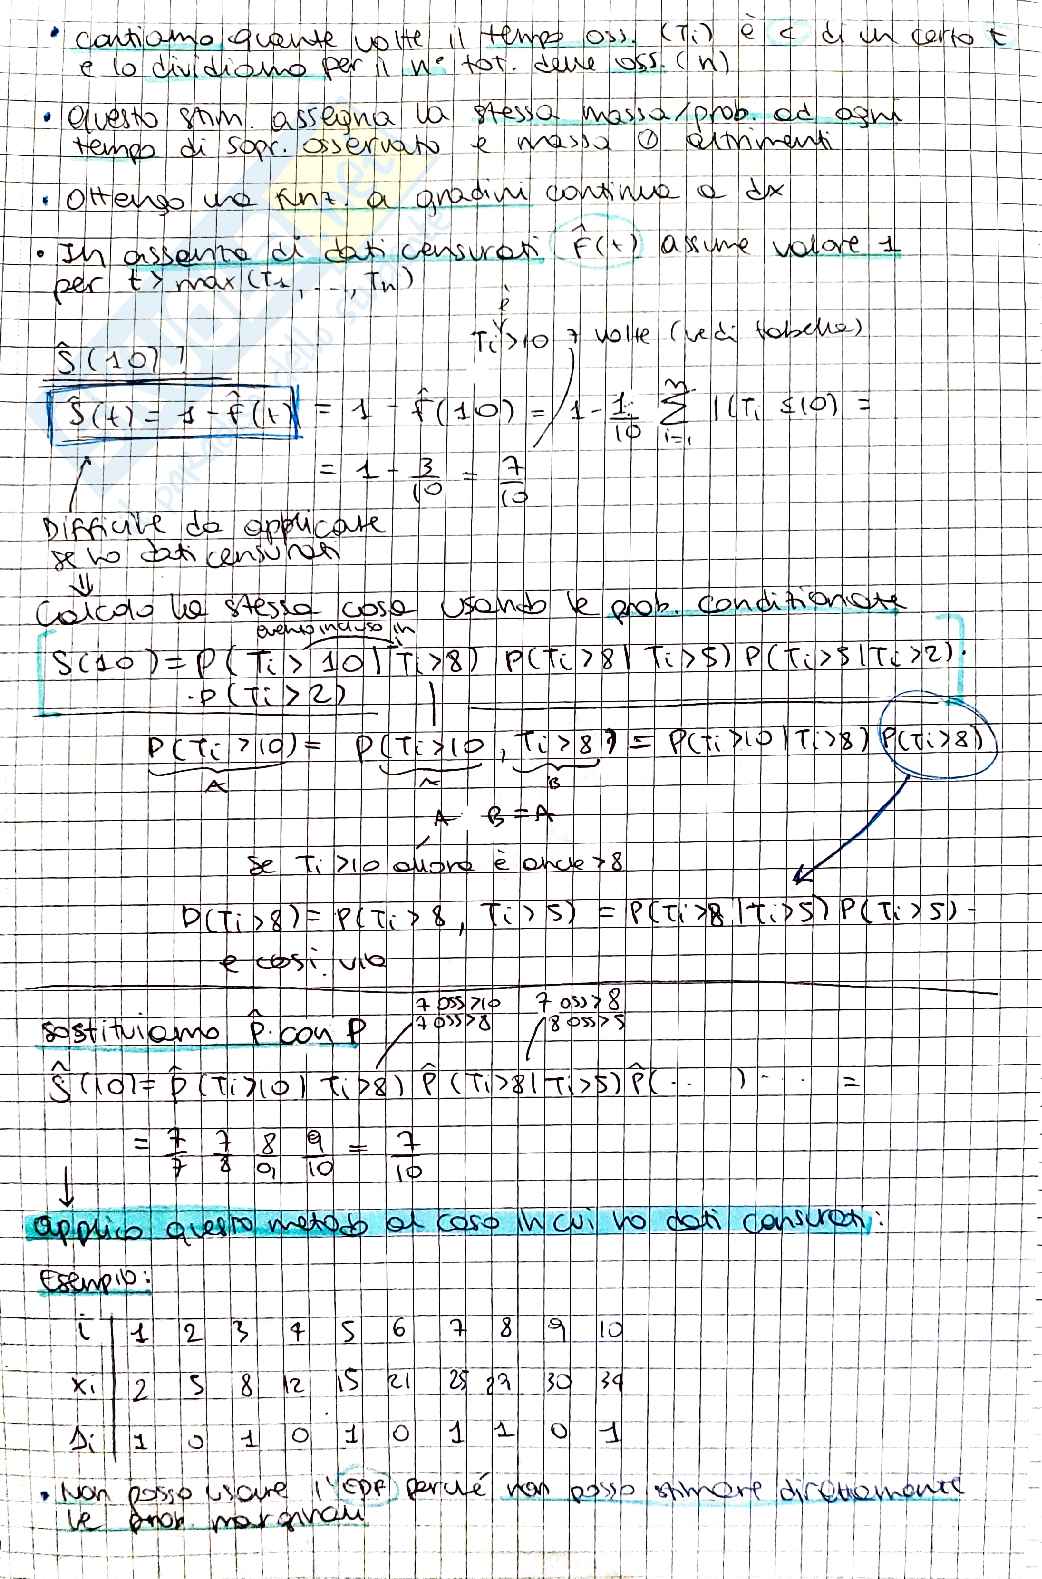 • contiamo quante volte il tempo oss. (Ti) è < di un certo t
e lo dividiamo per il n° tot. delle oss. (n)
• Questo stim. assegna la stessa massa/prob. ad ogni
tempo di sopr. osservato e massa 0 altrimenti
• Ottengo una funz. a gradini continua a dx
• In assenza di dati censurati F̂(t) assume valore 1
per t > max(T1, ..., Tn)
è
Ti>10 7 volte (vedi tabella)
Ŝ(10)?
Ŝ(t) = 1 - F̂(t) = 1 - F̂(10) = 1 - 1/10 Σ_{i=1}^{n} I(Ti ≤10) =
= 1 - 3/10 = 7/10
Difficile da applicare
se ho dati censurati
⇓
Calcolo la stessa cosa usando le prob. condizionate
evento incluso in
S(10) = P(Ti > 10 | Ti > 8) P(Ti > 8 | Ti > 5) P(Ti > 5 | Ti > 2)·
·P(Ti > 2)
P(Ti > 10) = P(Ti > 10, Ti > 8) = P(Ti > 10 | Ti > 8) P(Ti > 8)
A A B
A B = A
se Ti > 10 allora è anche > 8
P(Ti > 8) = P(Ti > 8, Ti > 5) = P(Ti > 8 | Ti > 5) P(Ti > 5) -
e così via
7 oss > 10 7 oss > 8
7 oss > 8 8 oss > 5
sostituiamo P̂ con P
Ŝ(10) = P̂(Ti > 10 | Ti > 8) P̂(Ti > 8 | Ti > 5) P̂(· · ) · · · =
= 7/7 7/8 8/9 9/10 = 7/10
applico questo metodo al caso in cui ho dati censurati:
Esempio:
i 1 2 3 4 5 6 7 8 9 10
Xi 2 5 8 12 15 21 25 29 30 34
Δi 1 0 1 0 1 0 1 1 0 1
• Non posso usare l'EDF perché non posso stimare direttamente
le prob. marginali